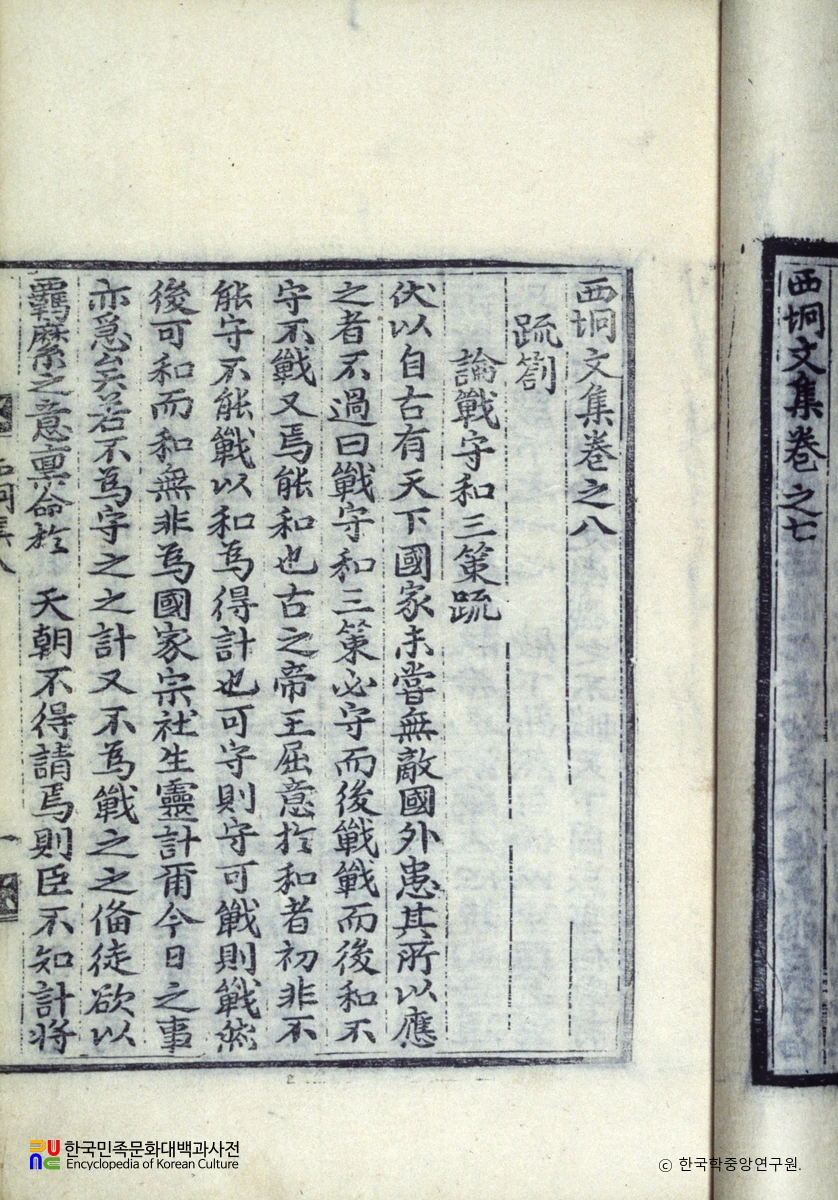 西坰文集卷之七
西坰文集卷之八
疏劄
論戰守和三策疏
伏以自古有天下國家未嘗無敵國外患其所以應
之者不過曰戰守和三策必守而後戰戰而後和不
守不戰又焉能和也古之帝王屈意於和者初非不
能守不能戰以和為得計也可守則守可戰則戰然
後可和而和無非為國家宗社生靈計爾今日之事
亦急矣若不為守之之計又不為戰之之俻徒欲以
羈縻之意稟命於 天朝不得請焉則臣不知計將
한국민족문화대백과사전
Encyclopedia of Korean Culture
© 한국학중앙연구원.